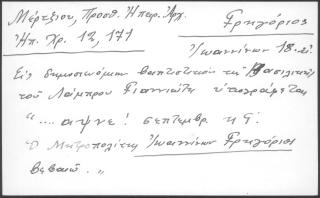 Μέρτζιου, Προσθ. Ἠπειρ. Ἀρχ.
Ἠπ. Χρ. 12, 171
Γρηγόριος
Ἰωαννίνων 18. αἰ.
Εἰς δημοσιευόμενον βαπτιστικὸν τῆς Βασιλικῆς
τοῦ Λάμπρου Γιαννιώτη ὑπογράφεται
"... αψνε! σεπτεμβρ. κς΄.
Ὁ Μητροπολίτης Ἰωαννίνων Γρηγόριος
βεβαιῶ.. "